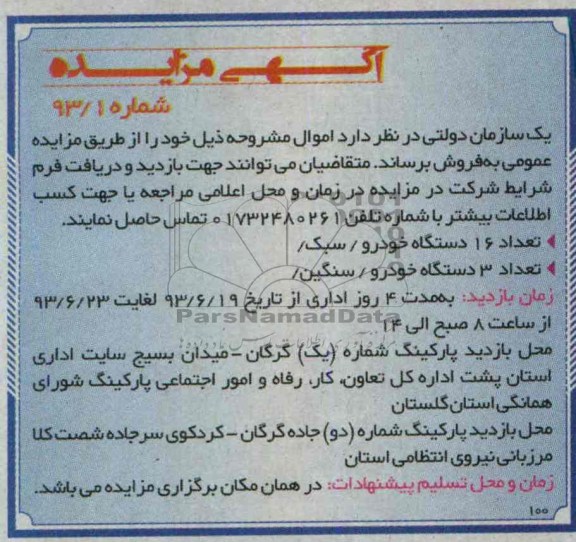 آگهی مزایده
شماره ۹۳/۱
یک سازمان دولتی در نظر دارد اموال مشروحه ذیل خود را از طریق مزایده
عمومی به‌فروش برساند. متقاضیان می‌توانند جهت بازدید و دریافت فرم
شرایط شرکت در مزایده در زمان و محل اعلامی مراجعه یا جهت کسب
اطلاعات بیشتر با شماره تلفن ۰۱۷۳۲۴۸۰۲۶۱ تماس حاصل نمایند.
تعداد ۱۶ دستگاه خودرو / سبک/
تعداد ۳ دستگاه خودرو / سنگین/
زمان بازدید: به‌مدت ۴ روز اداری از تاریخ ۹۳/۶/۱۹ لغایت ۹۳/۶/۲۳
از ساعت ۸ صبح الی ۱۴
ParsNamadData
محل بازدید پارکینگ شماره (یک) گرگان - میدان بسیج سایت اداری
استان پشت اداره کل تعاون، کار، رفاه و امور اجتماعی پارکینگ شورای
همانگی استان گلستان
محل بازدید پارکینگ شماره (دو) جاده گرگان - کردکوی سر جاده شصت کلا
مرزبانی نیروی انتظامی استان
زمان و محل تسلیم پیشنهادات: در همان مکان برگزاری مزایده می باشد.
۱۰۰